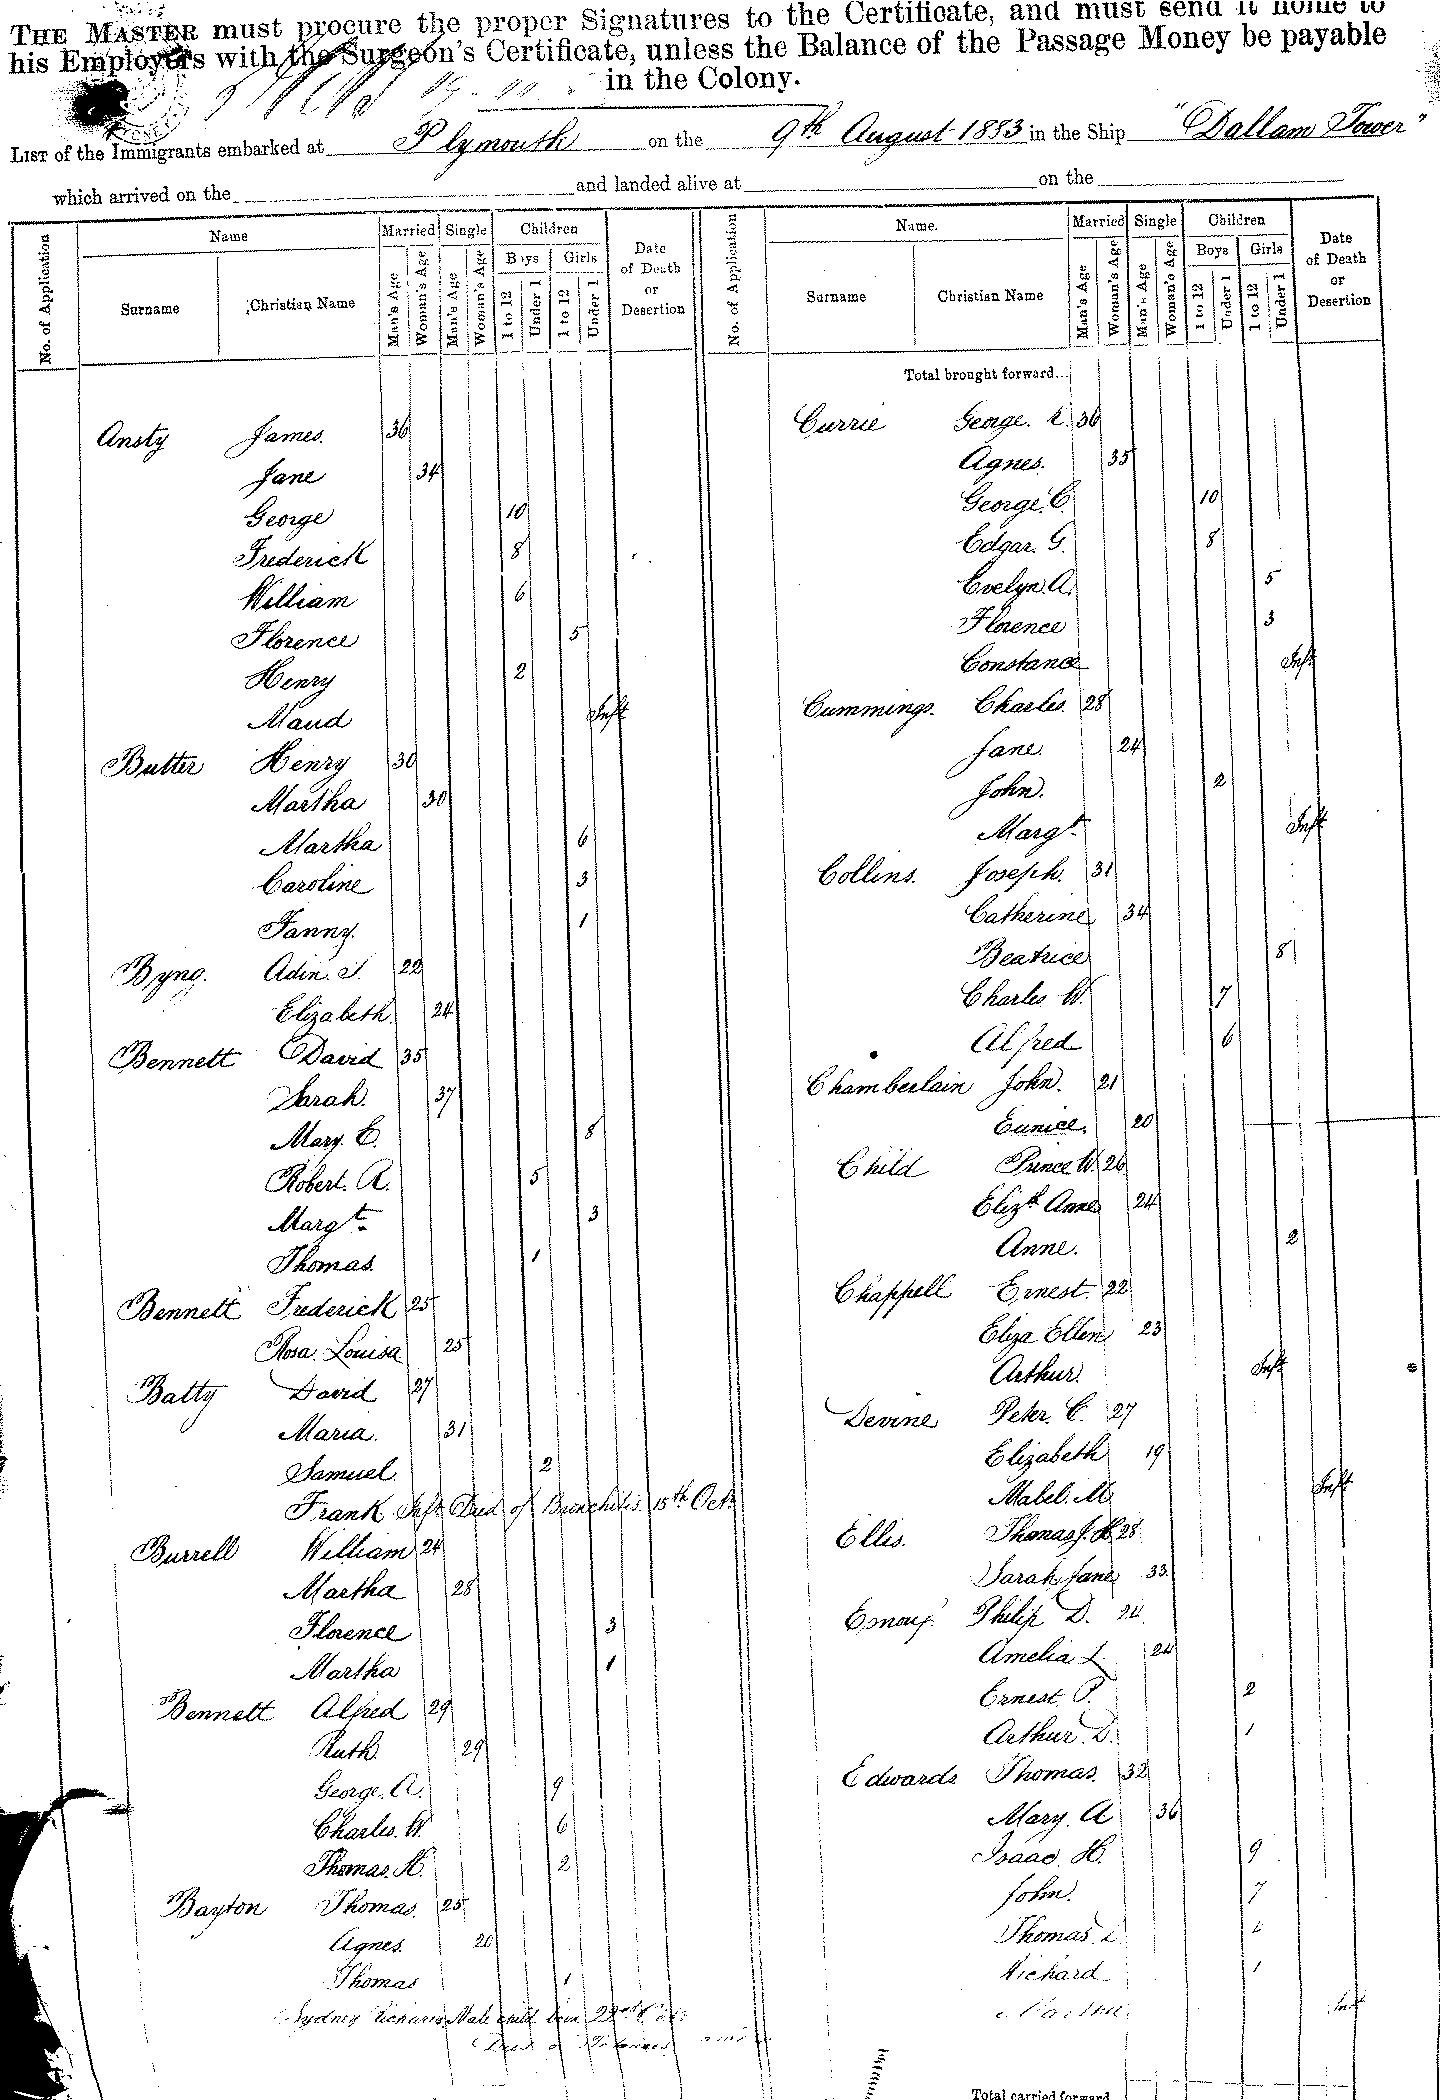 THE MASTER must procure the proper Signatures to the Certificate, and must send it home to
his Employers with the Surgeon's Certificate, unless the Balance of the Passage Money be payable
in the Colony.
LIST of the Immigrants embarked at Plymouth on the 9th August 1883 in the Ship "Dallam Tower"
which arrived on the and landed alive at on the
No. of Application
Name
Surname
Christian Name
Married
Man's Age
Woman's Age
Single
Man's Age
Woman's Age
Children
Boys
1 to 12
Under 1
Girls
1 to 12
Under 1
Date
of Death
or
Desertion
Ansty James. 36
Jane 34
George 10
Frederick 8
William 6
Florence 5
Henry 2
Maud Inft
Butter Henry 30
Martha 30
Martha 6
Caroline 3
Fanny. 1
Byng. Adin. S. 22
Elizabeth. 24
Bennett David 35
Sarah. 37
Mary. E. 8
Robert. A. 5
Margt. 3
Thomas. 1
Bennett Frederick 25
Rosa. Louisa 25
Batty David 27
Maria. 31
Samuel 2
Frank Inft Died of Bronchitis 15th Octr
Burrell William 24
Martha 28
Florence 3
Martha 1
Bennett Alfred 29
Ruth 29
George. A. 9
Charles. W. 6
Thomas. H. 2
Bayton Thomas. 25
Agnes. 20
Thomas 1
Sydney Male child born 22nd
No. of Application
Name.
Surname
Christian Name
Married
Man's Age
Woman's Age
Single
Man's Age
Woman's Age
Children
Boys
1 to 12
Under 1
Girls
1 to 12
Under 1
Date
of Death
or
Desertion
Total brought forward...
Currie George. 36
Agnes. 35
George. C. 10
Edgar. G. 8
Evelyn. A. 5
Florence 3
Constance Inft
Cummings. Charles. 28
Jane 24
John. 2
Margt. Inft
Collins. Joseph. 31
Catherine 34
Beatrice 8
Charles W. 7
Alfred 6
Chamberlain John. 21
Eunice. 20
Child Prince W. 26
Elizth Anne 24
Anne. 2
Chappell Ernest. 22
Eliza Ellen 23
Arthur. Inft
Devine Peter. C. 27
Elizabeth 19
Mabel. M. Inft
Ellis. Thomas J. H. 28
Sarah Jane 33
Philip D. 24
Amelia L. 24
Ernest. P. 2
Arthur. D. 1
Edwards Thomas. 32
Mary. A 36
Isaac. H. 9
John. 7
Thomas L.
Richard 1
Martha. Inft
Total carried forward